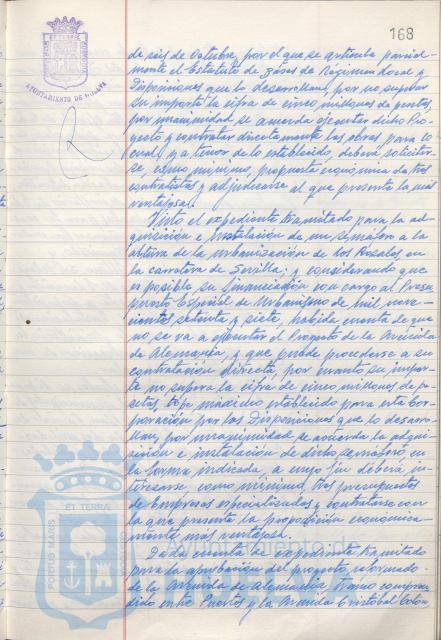 168
AYUNTAMIENTO DE HUELVA
de seis de Octubre, por el que se articula parcial-
mente el Estatuto de Bases de Regimen Local y
Disposiciones que lo desarrollan, por no superar
su importe la cifra de cinco millones de pesetas,
por unanimidad se acuerda ejecutar dicho Pro-
yecto y contratar directamente las obras, para lo
cual, y a tenor de lo establecido, deberá solicitar-
se, como mínimo, propuesta economica de tres
contratistas y adjudicarse al que presente la más
ventajosa.
Visto el expediente tramitado para la ad-
quisición e instalación de un semáforo a la
altura de la urbanización de Los Rosales en
la carretera de Sevilla; y considerando que
es posible su financiación con cargo al Presu-
puesto Especial de Urbanismo de mil nove-
cientos setenta y siete, habida cuenta de que
no se va a ejecutar el Proyecto de la Avenida
de Alemania, y que puede procederse a su
contratación directa, por cuanto su impor-
te no supera la cifra de cinco millones de pe-
setas, tope máximo establecido para esta Cor-
poración por las Disposiciones que lo desarro-
llan, por unanimidad se acuerda la adqui-
sición e instalación de dicho semáforo, en
la forma indicada, a cuyo fin deberá in-
teresarse, como mínimo, tres presupuestos
de Empresas especializadas y contratarse con
la que presente la proposición economica-
mente más ventajosa.
Dada cuenta de expediente tramitado
para la aprobación del proyecto reformado
de la Avenida de Alemania, tramo compren-
dido entre Puerto y la Avenida Cristóbal Colón
PORTUS MARIS
ET TERRAE
Ayuntamiento de
HUELVA